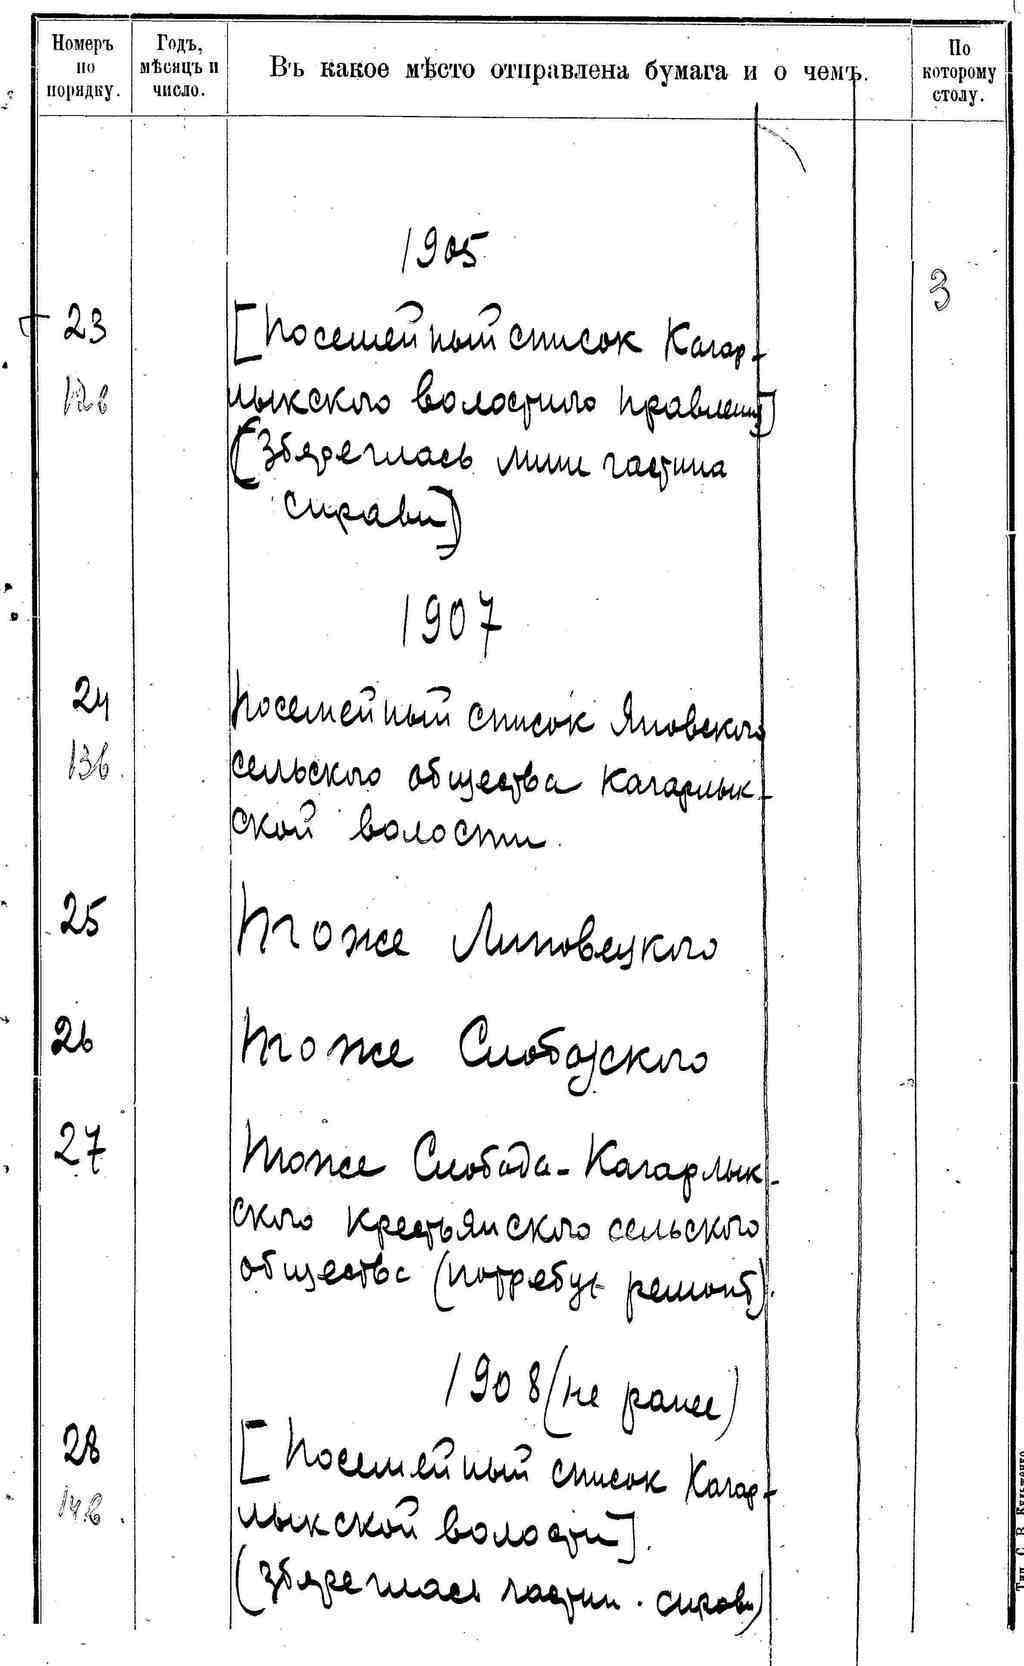 Номеръ по порядку.
Годъ, мѣсяцъ и число.
Въ какое мѣсто отправлена бумага и о чемъ.
По которому столу.
3
1905
23
[Посемейный список Кагар-
12в
лыкского волостного правления]
(Збереглась лише частина
справи)
1907
24
Посемейный список Яновского
13в.
сельского общества Кагарлык-
ской волости.
25
То же Липовецкого
26
То же Слободского
27
То же Слобода-Кагарлык-
ского крестьянского сельского
общества (потребує ремонт).
1908 (не ранее)
28
[Посемейный список Кагар-
14в.
лыкской волости].
(Збереглась частин. справи)
Тип. С. В. Кульженко